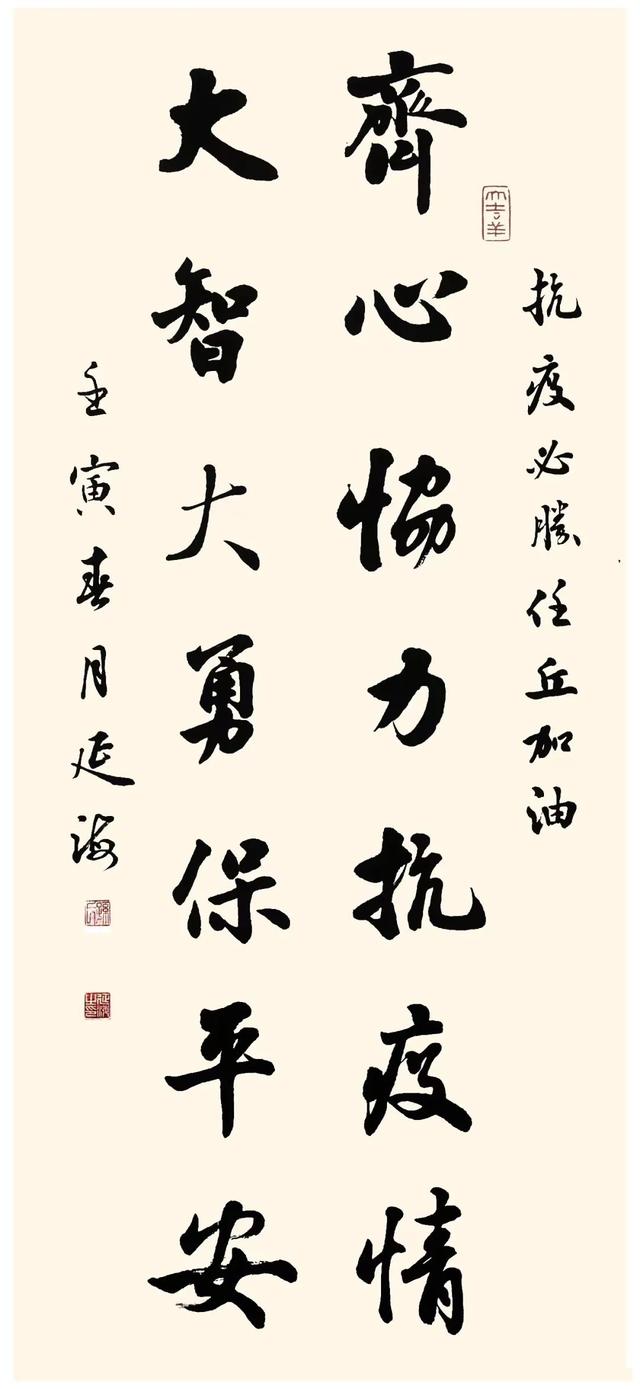 抗疫必勝任丘加油
齊心協力抗疫情
大智大勇保平安
壬寅春月延海